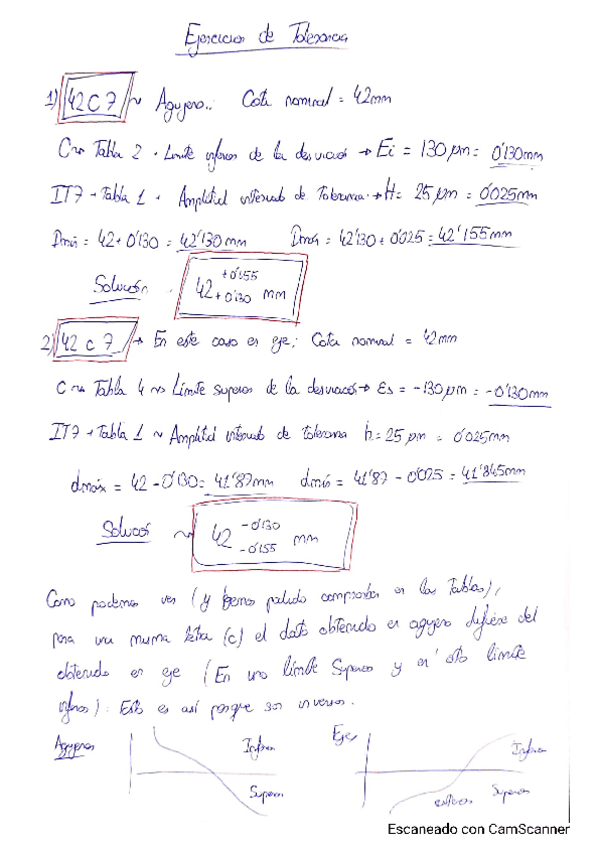 Ejercicios de Tolerancia
1) 42 C 7 ~ Agujero.: Cota nominal = 42mm
C ~ Tabla 2 · Límite inferior de la desviación → Ei = 130 μm = 0'130mm
IT7 → Tabla 1 · Amplitud intervalo de Tolerancia → H = 25 μm = 0'025mm
Dmín = 42 + 0'130 = 42'130mm Dmáx = 42'130 + 0'025 = 42'155mm
Solución 42 +0'155 +0'130 mm
2) 42 c 7 → En este caso es eje; Cota nominal = 42mm
C ~ Tabla 4 ~ Límite superior de la desviación → Es = -130 μm = -0'130mm
IT7 → Tabla 1 ~ Amplitud intervalo de tolerancia h = 25 μm = 0'025mm
dmáx = 42 - 0'130 = 41'87mm dmín = 41'87 - 0'025 = 41'845mm
Solución ~ 42 -0'130 -0'155 mm
Como podemos ver (y hemos podido comprobar en las Tablas),
para una misma letra (c) el dato obtenido en agujero difiere del
obtenido en eje (En uno límite Superior y en otro límite
inferior). Esto es así porque son inversos.
Agujeros Inferior Ejes Inferior
Superior Superior
Escaneado con CamScanner